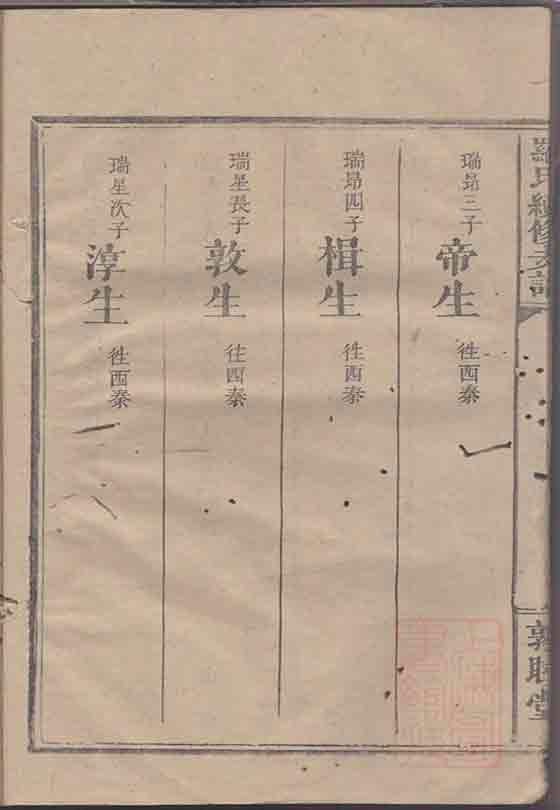 羅氏續修支譜
瑞昂三子
帝生
徃西秦
瑞昂四子
楫生
徃西秦
瑞星長子
敦生
徃西秦
瑞星次子
淳生
徃西秦
敦睦堂